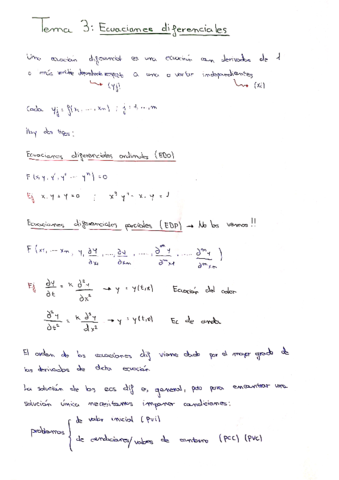 Tema 3: Ecuaciones diferenciales
Una ecuación diferencial es una ecuación con derivadas de 1
o más respect a una o varias independientes
(yj) (xi)
Cada yj = f(x1, ..., xm) ; j = 1, ..., m
Hay dos tipos:
Ecuaciones diferenciales ordinarias (EDO)
F(x, y, y', y'' ... yⁿ) = 0
Ej x · y + y = 0 ;
Ecuaciones diferenciales parciales (EDP) → No las vemos!!
F(x1, ... xm, y, ∂y/∂x1, ..., ∂y/∂xm, ..., ∂ᵐy/∂ᵐx1, ..., ∂ᵐy/∂ᵐxm)
Ej ∂y/∂t = k ∂²y/∂x² → y = y(t,x) Ecuación del calor
∂²y/∂t² = k ∂²y/∂x² → y = y(t,x) Ec de onda
El orden de las ecuaciones dif viene dado por el mayor grado de
las derivadas de dicha ecuación
La solución de las ecs dif es, general, pero para encontrar una
solución única necesitamos imponer condiciones:
problemas de valor inicial (PVI)
de condiciones/valores de contorno (PCC) (PVC)